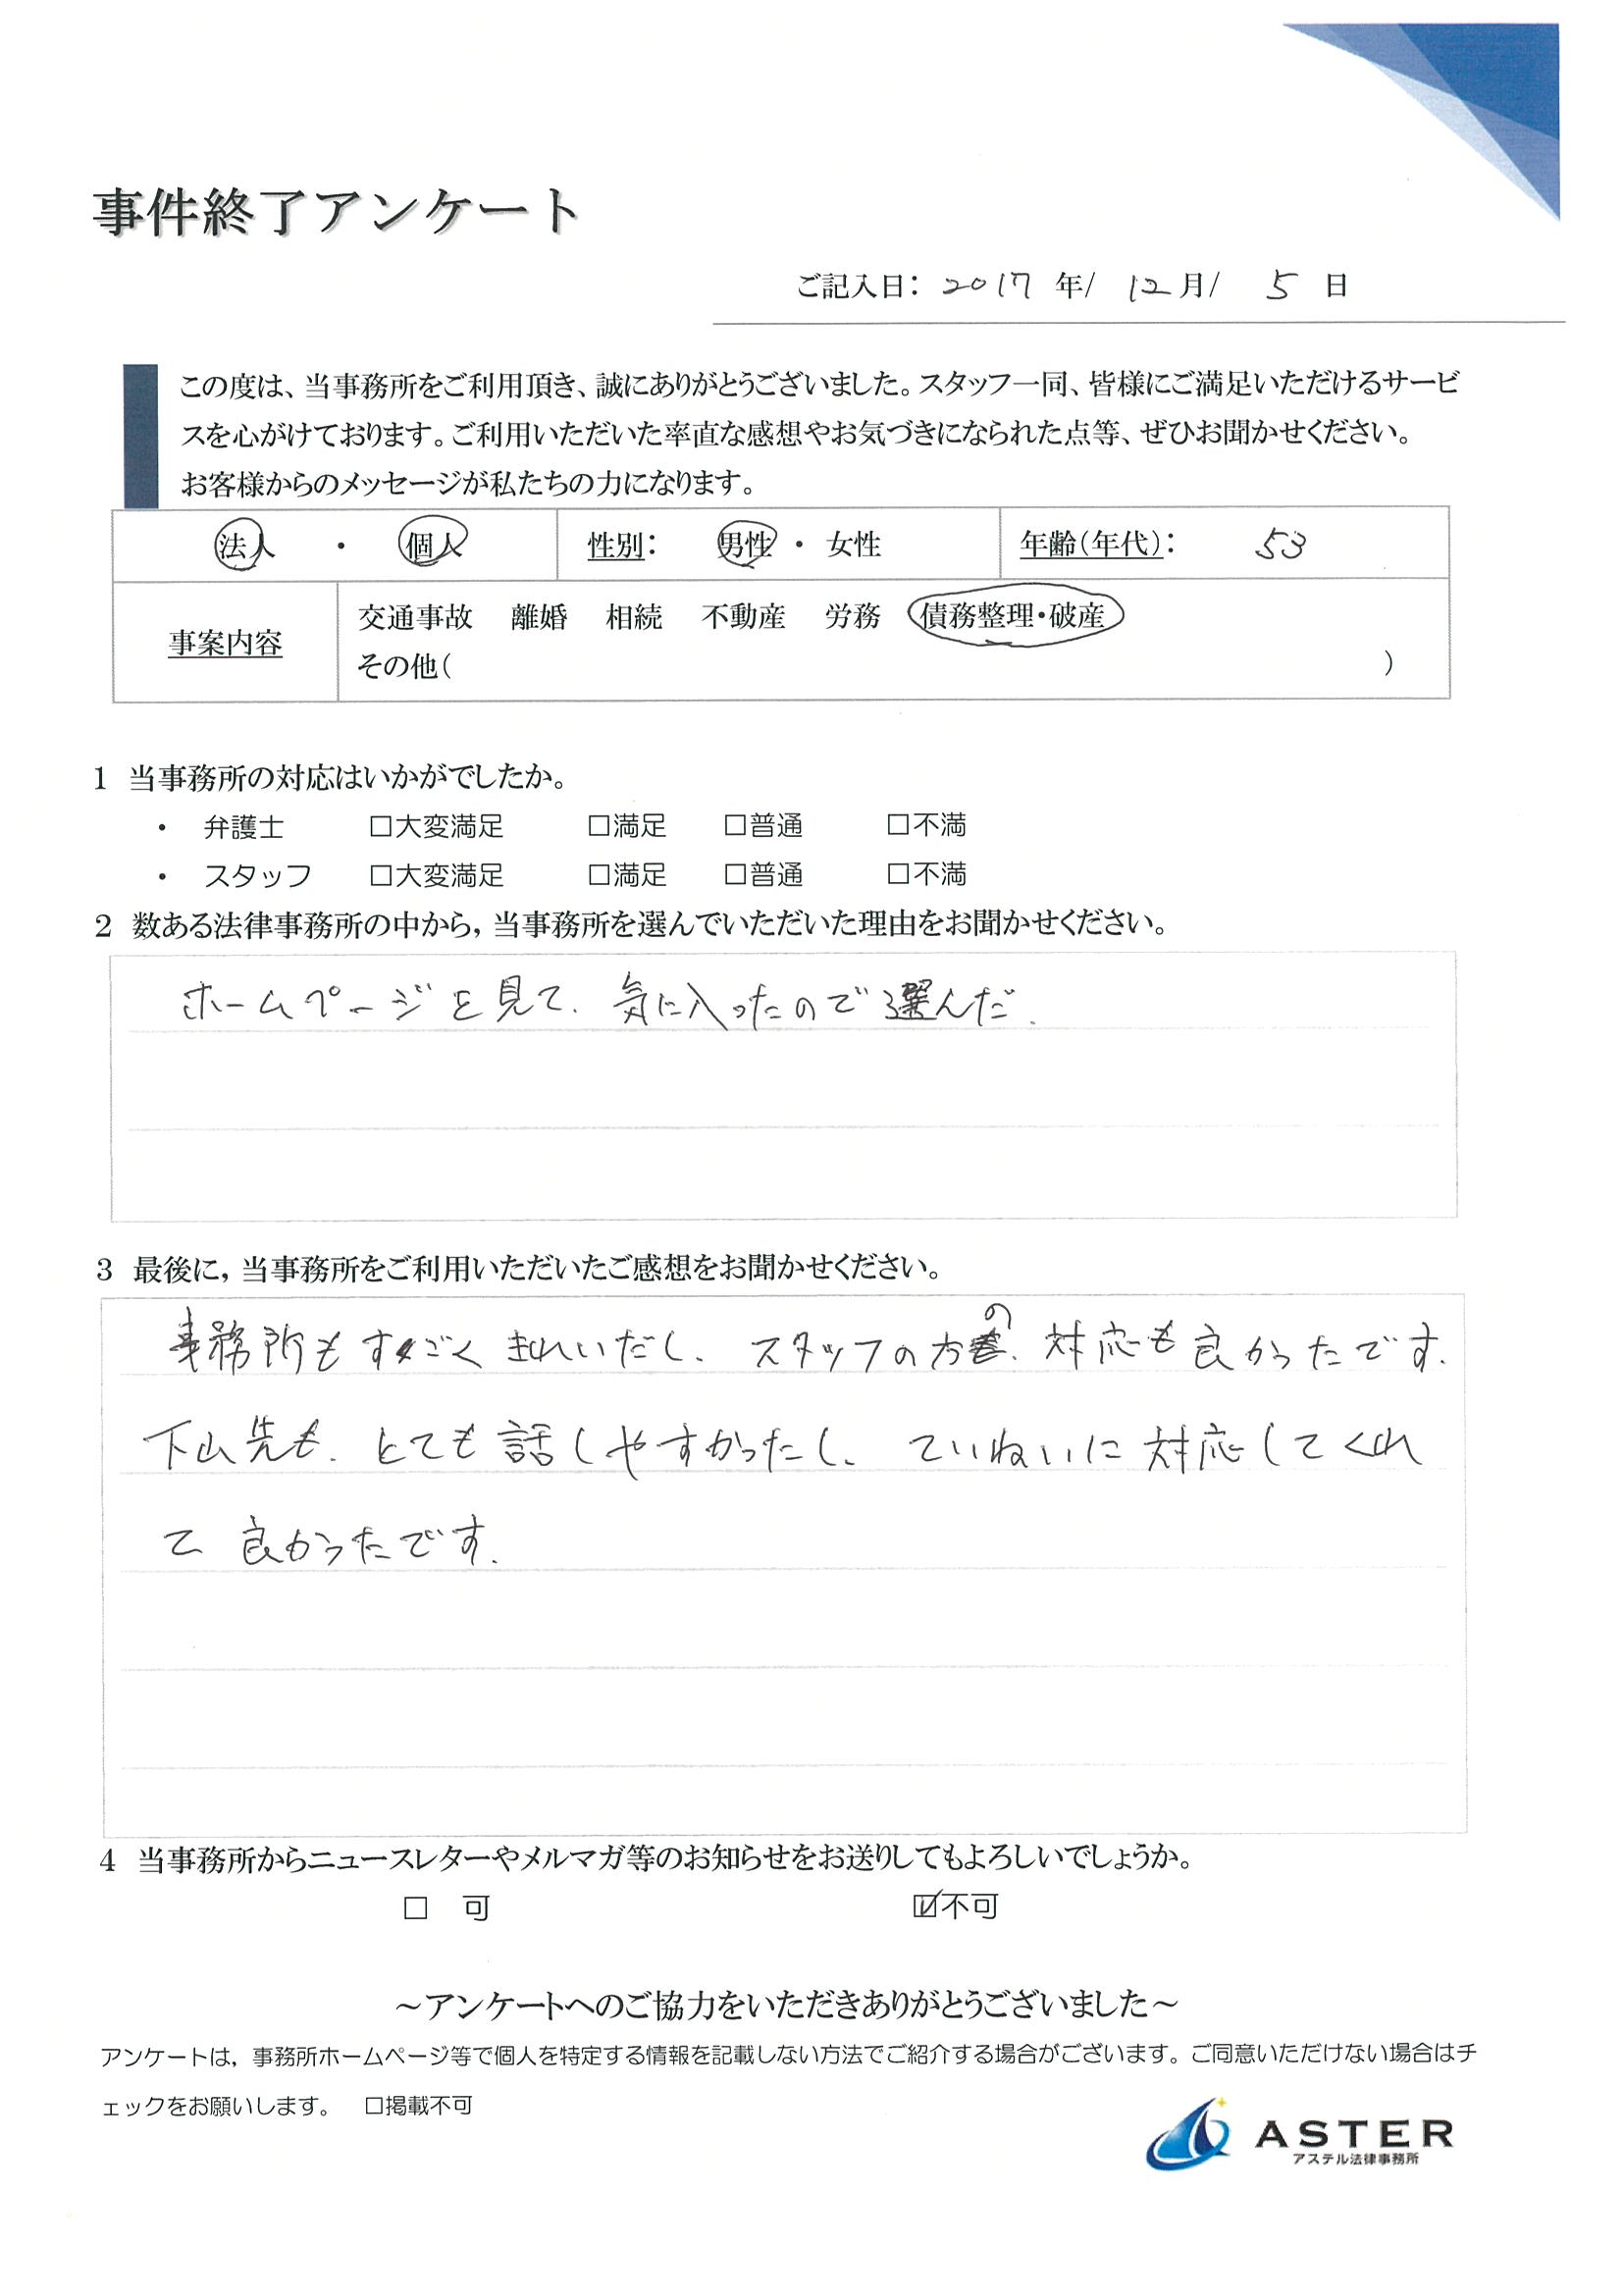 事件終了アンケート
ご記入日： 2017 年/ 12月/ 5 日
この度は、当事務所をご利用頂き、誠にありがとうございました。スタッフ一同、皆様にご満足いただけるサービ
スを心がけております。ご利用いただいた率直な感想やお気づきになられた点等、ぜひお聞かせください。
お客様からのメッセージが私たちの力になります。
法人 ・ 個人 性別： 男性 ・ 女性 年齢（年代）： 53
事案内容 交通事故 離婚 相続 不動産 労務 債務整理・破産
その他（ ）
1 当事務所の対応はいかがでしたか。
・ 弁護士 □大変満足 □満足 □普通 □不満
・ スタッフ □大変満足 □満足 □普通 □不満
2 数ある法律事務所の中から，当事務所を選んでいただいた理由をお聞かせください。
ホームページを見て、気に入ったので選んだ。
3 最後に，当事務所をご利用いただいたご感想をお聞かせください。
事務所もすごくきれいだし、スタッフの方の、対応も良かったです。
下山先も、とても話しやすかったし、ていねいに対応してくれ
て良かったです。
4 当事務所からニュースレターやメルマガ等のお知らせをお送りしてもよろしいでしょうか。
□ 可 ☑不可
～アンケートへのご協力をいただきありがとうございました～
アンケートは，事務所ホームページ等で個人を特定する情報を記載しない方法でご紹介する場合がございます。ご同意いただけない場合はチ
ェックをお願いします。 □掲載不可
ASTER
アステル法律事務所